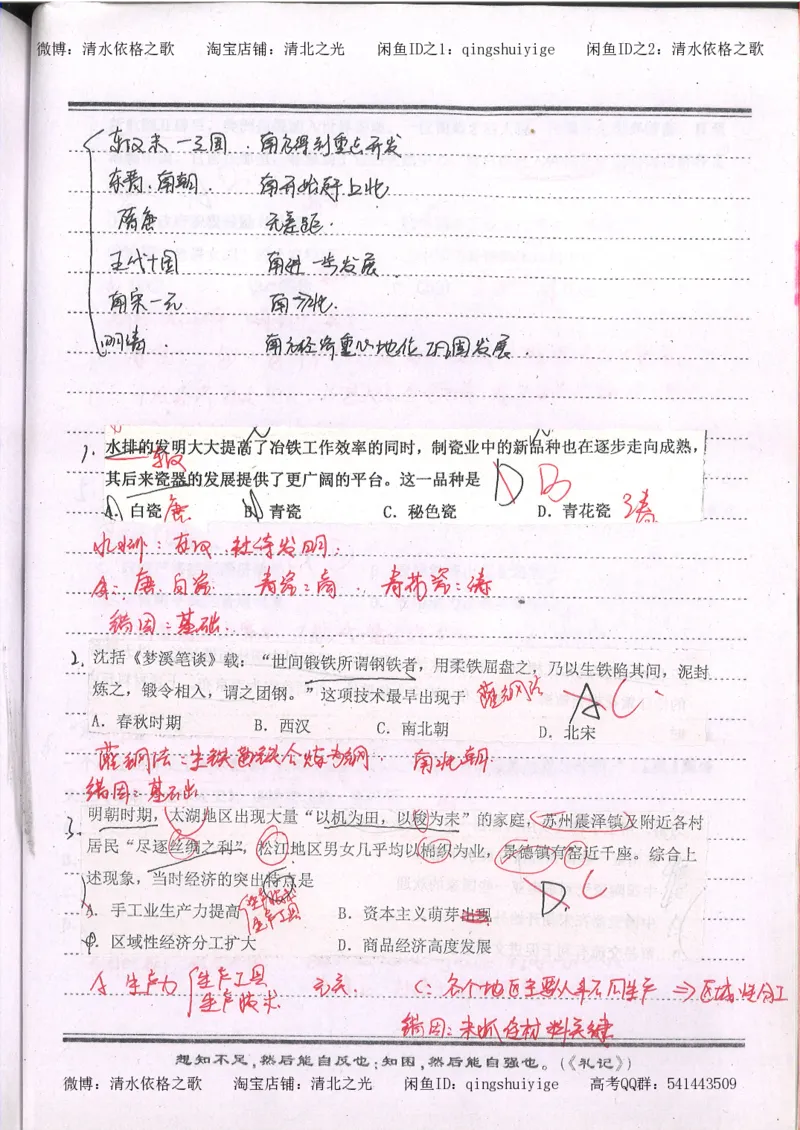 微博：清水依格之歌 淘宝店铺：清北之光 闲鱼ID之1：qingshuiyige 闲鱼ID之2：清水依格之歌
东汉末—三国．南方得到重点开发
东晋．南朝． 南开始赶上北
隋唐 无差距．
五代十国 南进一步发展．
南宋—元 南方北．
明清． 南方经济重心地位巩固发展．
1. 水排的发明大大提高了冶铁工作效率的同时，制瓷业中的新品种也在逐步走向成熟，
东汉
其后来瓷器的发展提供了更广阔的平台。这一品种是 D B
A. 白瓷 唐 B. 青瓷 C. 秘色瓷 D. 青花瓷
水排：东汉．杜诗发明．
A：唐．白瓷 青瓷：商． 青花瓷：清
错因：基础．
2. 沈括《梦溪笔谈》载：“世间锻铁所谓钢铁者，用柔铁屈盘之，乃以生铁陷其间，泥封
炼之，锻令相入，谓之团钢。”这项技术最早出现于 灌钢法 A C
A. 春秋时期 B. 西汉 C. 南北朝 D. 北宋
灌钢法：生铁熟铁合炼为钢． 南北朝
错因：基础
3. 明朝时期，太湖地区出现大量“以机为田，以梭为耒”的家庭，苏州震泽镇及附近各村
居民“尽逐丝绸之利”，松江地区男女几乎均以棉织为业，景德镇有窑近千座。综合上
述现象，当时经济的突出特点是 D C
A. 手工业生产力提高 生产技术 生产工具 B. 资本主义萌芽出现
C. 区域性经济分工扩大 D. 商品经济高度发展
A 生产力 生产工具 生产技术 无关． C：各个地区主要从事不同生产 ⇒区域性分工
错因：未抓住材料关键
想知不足，然后能自反也；知困，然后能自强也。（《礼记》）
微博：清水依格之歌 淘宝店铺：清北之光 闲鱼ID：qingshuiyige 高考QQ群：541443509